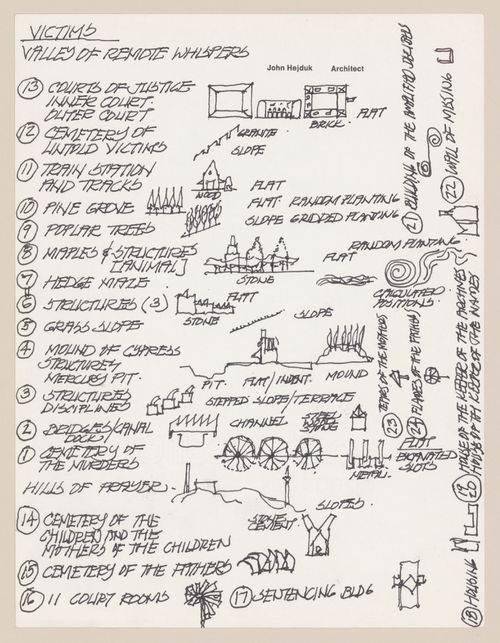 VICTIMS
VALLEY OF REMOTE WHISPERS
John Hejduk Architect
13 COURTS OF JUSTICE
INNER COURT.
OUTER COURT
BRICK.
FLAT
12 CEMETERY OF
UNTOLD VICTIMS
GRANITE
SLOPE
11 TRAIN STATION
AND TRACKS
WOOD
FLAT
10 PINE GROVE
FLAT RANDOM PLANTING
9 POPLAR TREES
SLOPE GRIDDED PLANTING
8 MAPLES & STRUCTURES
[ANIMAL]
STONE
FLAT
RANDOM PLANTING
7 HEDGE MAZE
CALCULATED
POSITIONS
6 STRUCTURES (3)
STONE
FLAT
5 GRASS SLOPE
SLOPE
4 MOUND OF CYPRESS
STRUCTURES
MERCURY PIT.
PIT. FLAT/INDENT. MOUND
3 STRUCTURES
DISCIPLINES
STEPPED SLOPE/TERRACE
2 BRIDGES/CANAL
DOCKS
CHANNEL
1 CEMETERY OF
THE MURDERS
METAL.
FLAT
EXCAVATED
SLOTS
HILLS OF PRAYER.
SLOPES
14 CEMETERY OF THE
CHILDREN AND THE
MOTHERS OF THE CHILDREN
STONE
CEMENT
15 CEMETERY OF THE FATHERS
16 11 COURT ROOMS
17 SENTENCING BLDG
18 HOUSING
19 HOUSE OF THE KEEPER OF THE ARCHIVES
HOUSE OF THE KEEPER OF THE NAMES
21 BUILDING OF THE
22 WALL OF MISSING
23 TEARS OF THE MOTHERS
24 FLAMES OF THE FATHERS